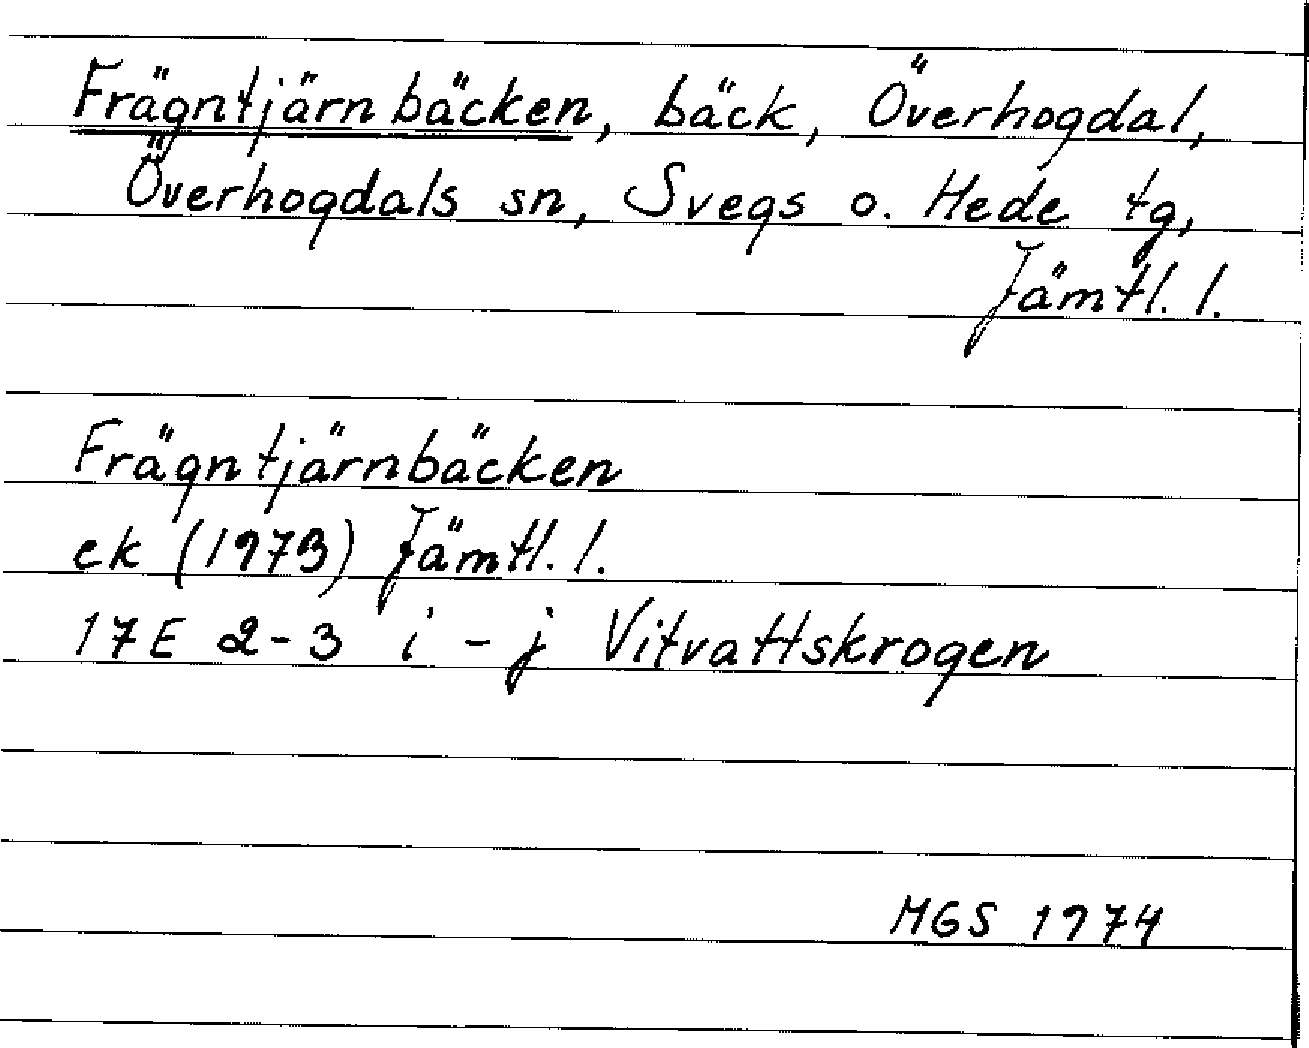 Frägntjärnbäcken, bäck, Överhogdal,
Överhogdals sn, Svegs o. Hede tg,
Jämtl. l.
Frägntjärnbäcken
ek (1973) Jämtl. l.
17E 2-3 i-j Vitvattskrogen
MGS 1974